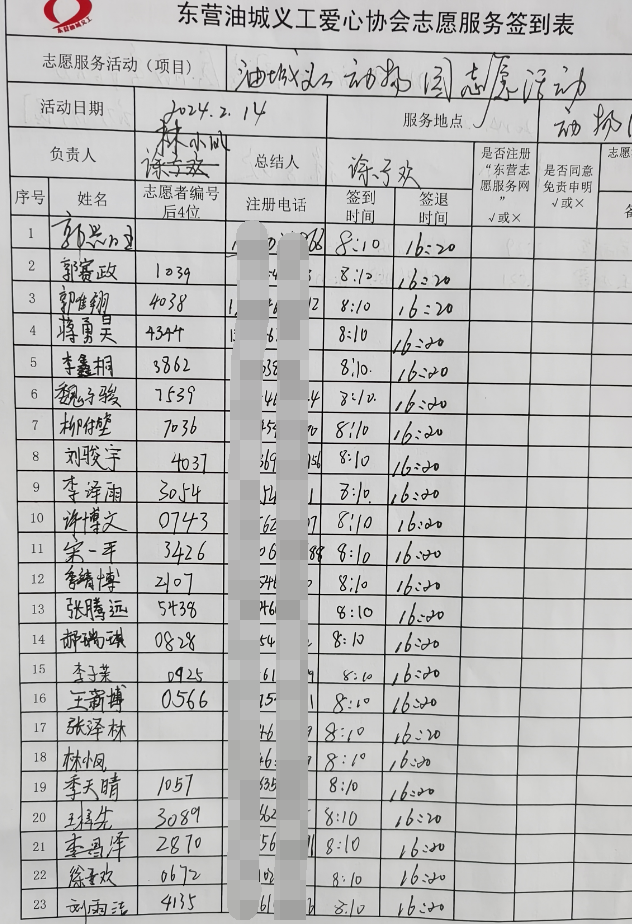 东营油城义工
东营油城义工爱心协会志愿服务签到表
志愿服务活动（项目） 油城义工动物园志愿活动
活动日期 2024.2.14 服务地点 动物
负责人 林小凤 徐子欢 总结人 徐子欢 是否注册“东营志愿服务网”√或× 是否同意免责申明√或× 志愿
序号 姓名 志愿者编号后4位 注册电话 签到时间 签退时间
1 8:10 16:20
2 郭赛政 1039 8:10 16:20
3 4038 8:10 16:20
4 蒋勇昊 4344 8:10 16:20
5 李鑫桐 3862 8:10. 16:20
6 魏子骏 7539 8:10. 16:20
7 7036 8:10 16:20
8 刘骏宇 4037 8:10 16:20
9 李泽雨 3054 8:10. 16:20
10 许博文 0743 8:10 16:20
11 宋一平 3426 8:10 16:20
12 李靖博 2107 8:10 16:20
13 张腾远 5438 8:10 16:20
14 郝瑞琪 0828 8:10 16:20
15 0925 8:10 16:20
16 0566 8:10 16:20
17 张泽林 8:10 16:20
18 林小凤 8:10 16:20
19 季天晴 1057 8:10 16:20
20 3089 8:10 16:20
21 2870 8:10 16:20
22 徐子欢 0672 8:10 16:20
23 刘雨洁 4135 8:10 16:20